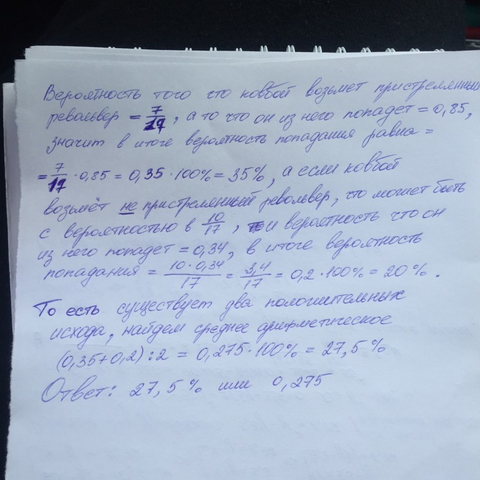 Вероятность того что ковбой возьмет пристреленный
револьвер = 7/17, а то что он из него попадет = 0,85,
значит в итоге вероятность попадания равна =
= 7/17 · 0,85 = 0,35 · 100% = 35%, а если ковбой
возьмёт не пристреленный револьвер, что может быть
с вероятностью в 10/17, и вероятность что он
из него попадет = 0,34, в итоге вероятность
попадания = 10 · 0,34/17 = 3,4/17 = 0,2 · 100% = 20%.
То есть существует два положительных
исхода, найдем среднее арифметическое
(0,35+0,2) : 2 = 0,275 · 100% = 27,5%
Ответ: 27,5% или 0,275